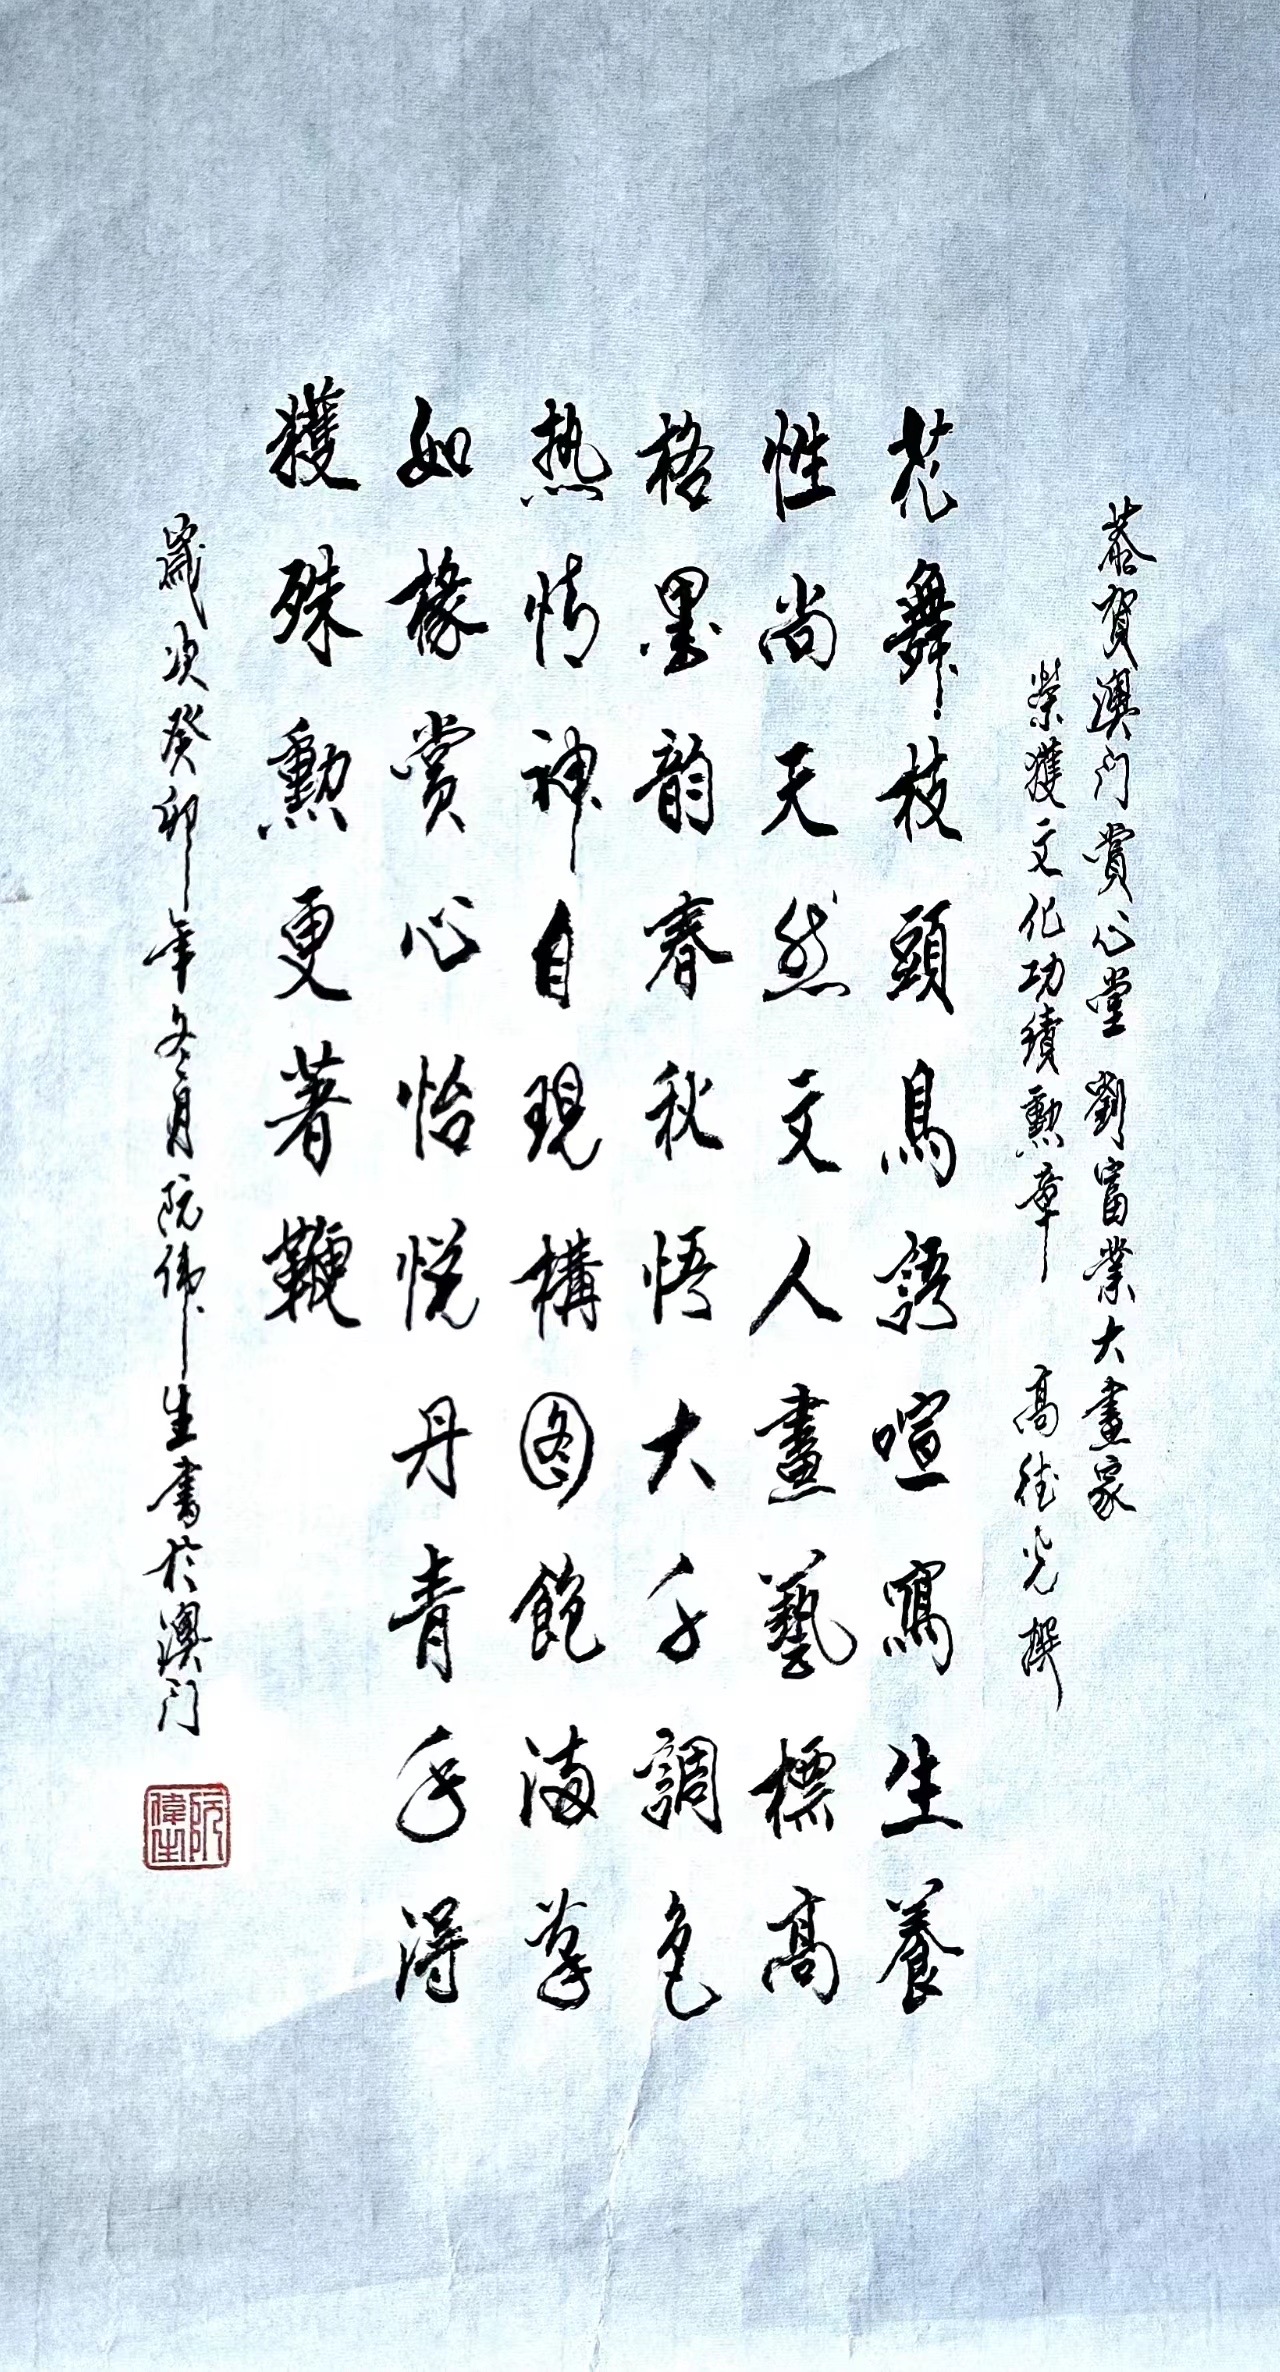 恭賀澳门賞心堂劉富業大畫家
榮獲文化功績勲章 高徒光撰
花舞枝頭鳥語喧寫生養
性尚天然文人畫藝標高
格墨韵春秋悟大千調色
热情神自現構图飽满筆
如椽賞心怡悅丹青手得
獲殊勲更著鞭
嵗次癸卯年冬月阮伟生書於澳门
阮偉生